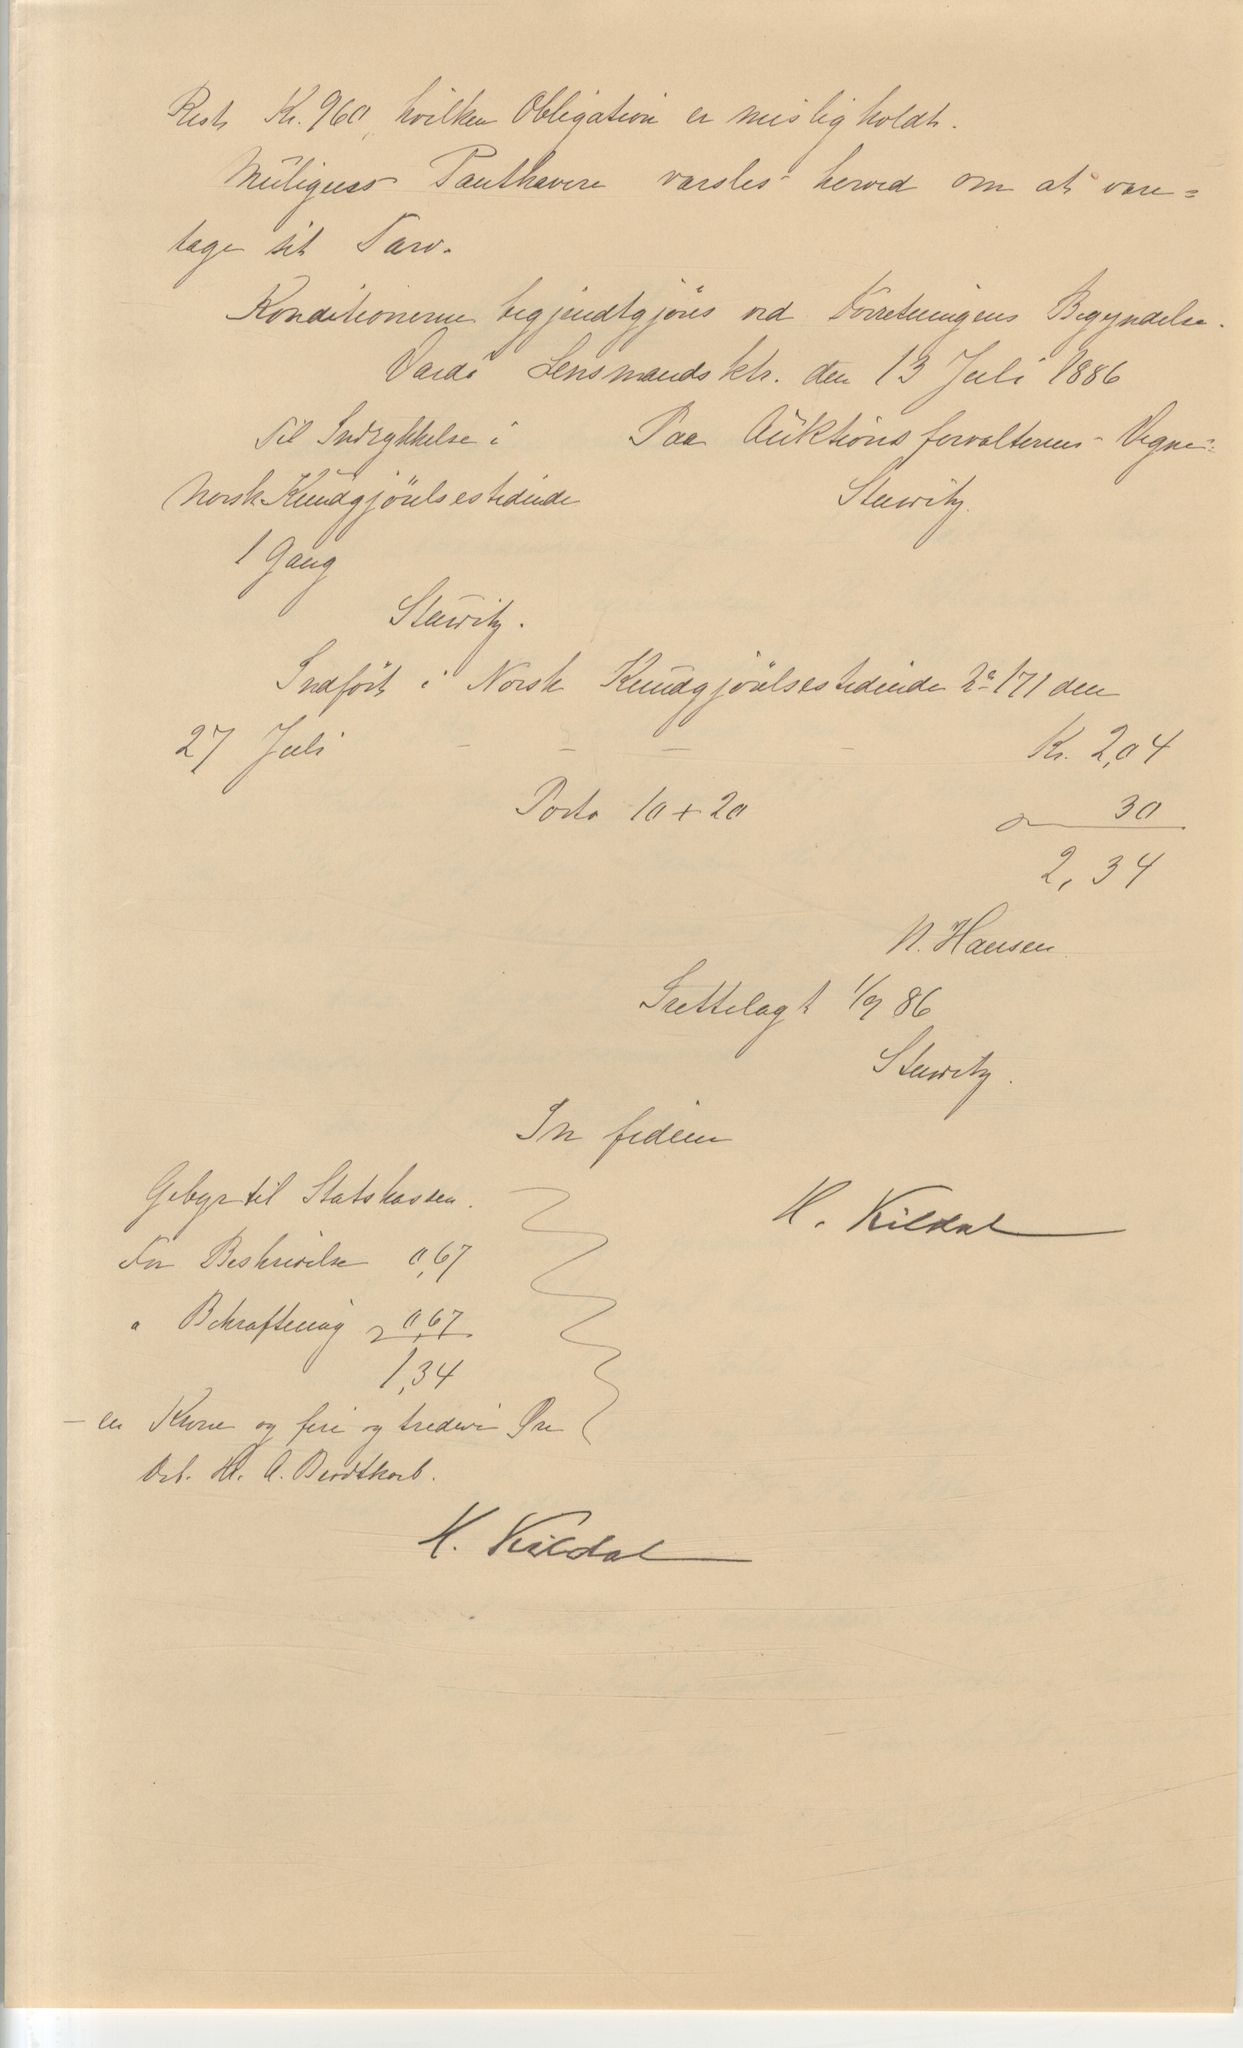 Rest Kr. 960, hvilken Obligation er misligholdt.
Muligens Panthavere varsles herved om at vare-
tage sit Tarv.
Konditionerne begjendtgjøres ved Forretningens Begyndelse.
Vardö Lensmandsktr. den 13 Juli 1886
Til Indrykkelse i Paa Auktionsforvalterens Vegne:
Norsk Kundgjörelsestidende Steuwitz.
1 Gang
Steuwitz.
Indfört i Norsk Kundgjörelsestidende No 171 den
27 Juli - - - - Kr. 2,04
Porto 10 + 20 30
2,34
N. Hansen
Irettelagt 1/9 86
Steuwitz.
In fidem
Gebyr til Statskassen.
H. Kildal
For Beskrivelse 0,67
" Bekræftning 0,67
1,34
- en Krone og fire og tredive Øre
Deb. Hr. A. Brodtkorb.
H. Kildal